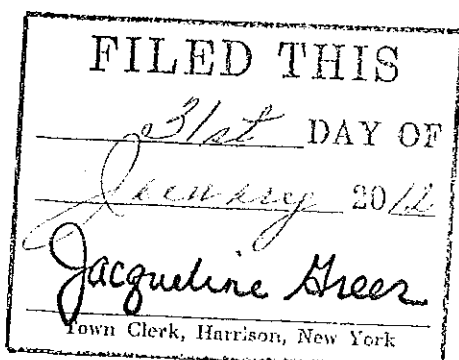 FILED THIS
31st DAY OF
January 2012
Jacqueline Greer
Town Clerk, Harrison, New York